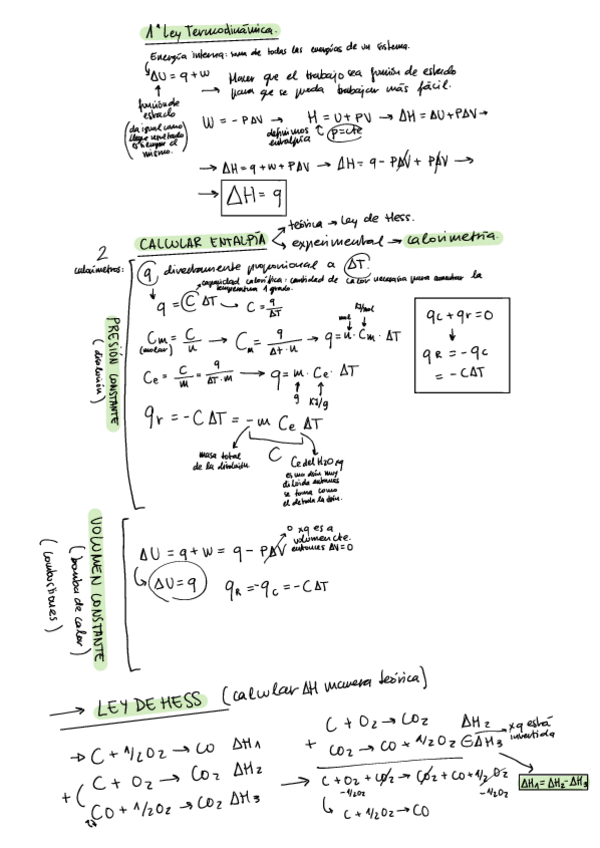 1ª Ley Termodinámica.
Energía interna: suma de todas las energías de un sistema.
ΔU = q + w
función de estado
(da igual como
el mismo.)
Hacer que el trabajo sea función de estado
para que se pueda trabajar más fácil.
W = - PΔV → H = U + PV → ΔH = ΔU + PΔV →
definimos entalpía
p=cte
→ ΔH = q + w + PΔV → ΔH = q - PΔV + PΔV →
→ ΔH = q
CALCULAR ENTALPÍA
teórica → Ley de Hess.
experimental → calorimetría.
2 calorímetros:
PRESIÓN CONSTANTE
(disolución)
q directamente proporcional a ΔT.
capacidad calorífica: cantidad de calor necesaria para aumentar la
temperatura 1 grado.
q = C ΔT → C = q/ΔT
Cm = C/n → Cm = q/Δt·n → q = n · Cm · ΔT
(molar)
mol
KJ/mol
Ce = C/m = q/ΔT·m → q = m · Ce · ΔT
g
KJ/g
qc + qr = 0
qR = - qc
= - CΔT
qr = - CΔT = - m Ce ΔT
C
masa total
de la disolución
Ce del H2O xq
es una disón muy
diluida entonces
se toma como
el de toda la disón.
VOLUMEN CONSTANTE
(bomba de calor)
(combustiones)
ΔU = q + w = q - PΔV
0 xq es a
volumen cte.
entonces ΔV = 0
ΔU = q
qR = -qc = - CΔT
→ LEY DE HESS (calcular ΔH manera teórica)
→ C + 1/2O2 → CO ΔH1
+ ( C + O2 → CO2 ΔH2
CO + 1/2O2 → CO2 ΔH3
C + O2 → CO2 ΔH2
+ CO2 → CO + 1/2O2 ⊖ΔH3
→ xq está
invertida
→ C + O2 + CO2 → CO2 + CO + 1/2 O2
-1/2O2
-1/2O2
C + 1/2O2 → CO
ΔH1 = ΔH2 - ΔH3